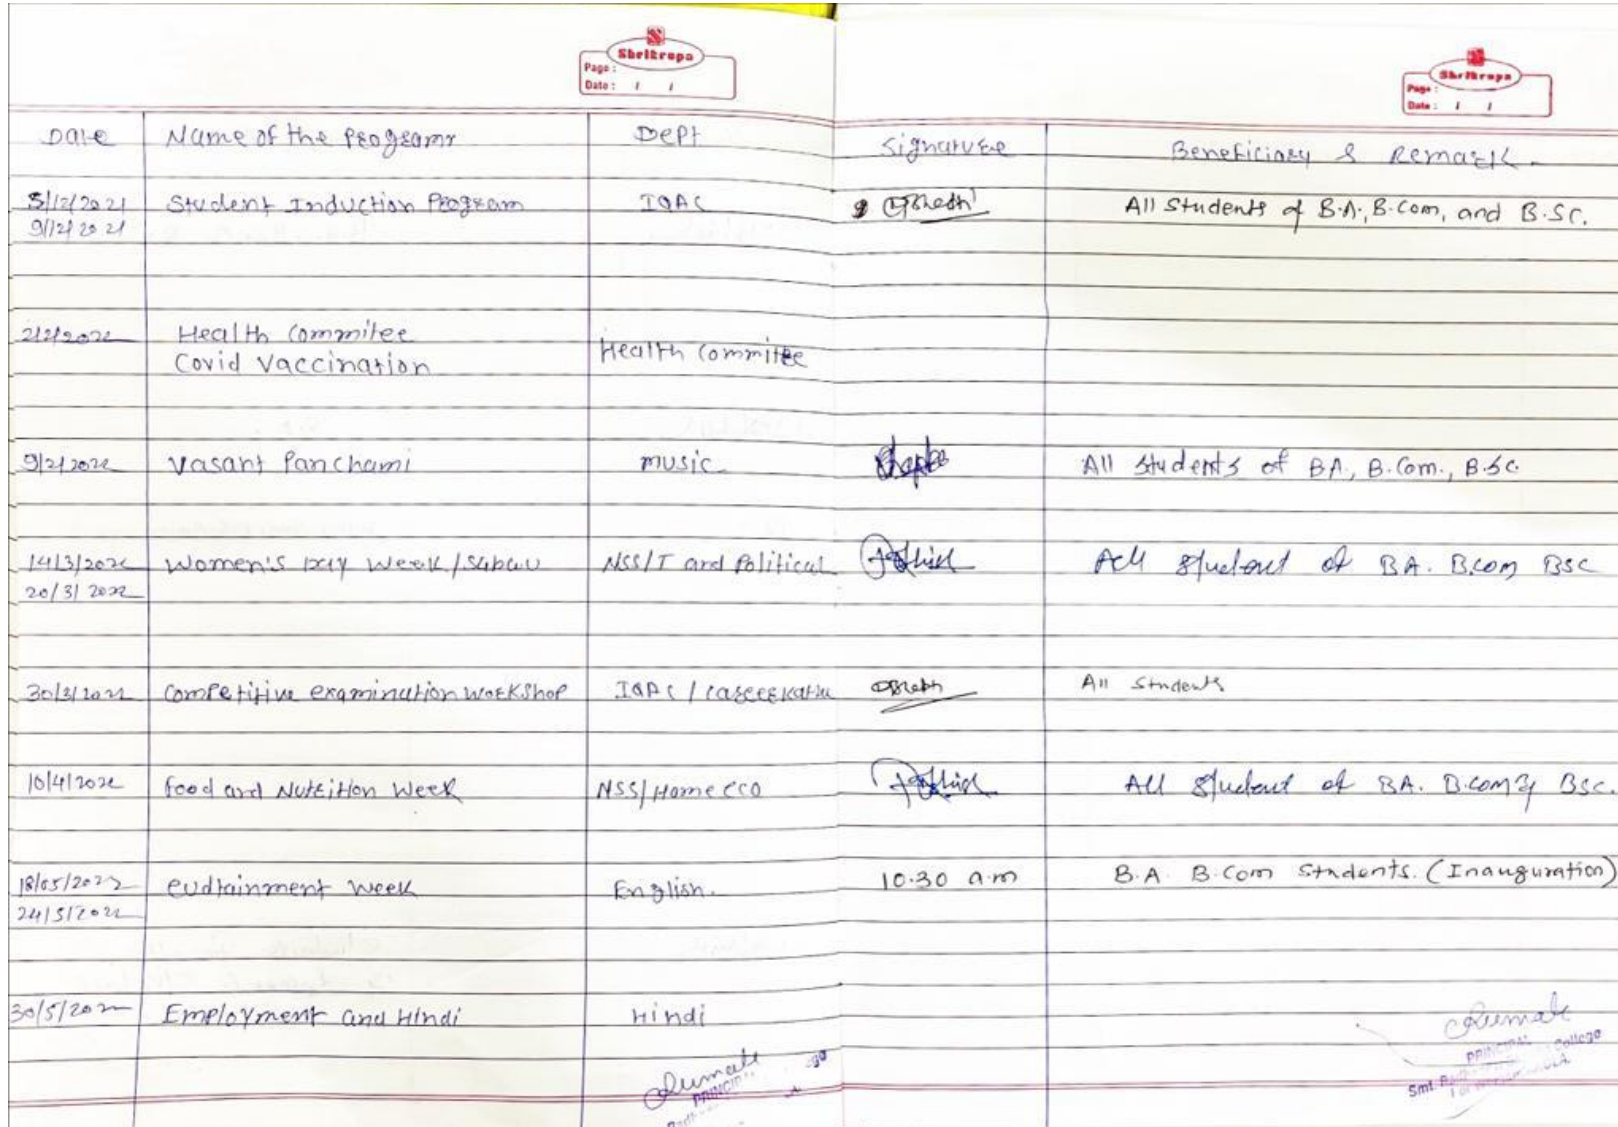 Shrikrupa
Page :
Date : / /
Shrikrupa
Page :
Date : / /
Date Name of the Programr Dept Signature Beneficiary & Remark.
5/12/2021 Student Induction Program IQAC All Students of B.A., B.Com, and B.Sc.
9/12/2021
2/2/2022 Health Commitee
Covid Vaccination Health Commitee
9/2/2022 Vasant Panchami music All students of BA, B.Com., B.Sc.
14/3/2022 Women's Day Week / NSS/I and Political All student of BA. B.com BSC
20/3/2022
30/3/2022 Competitive examination workshop IQAC / All Students
10/4/2022 food and Nutrition Week NSS/Home ECO All student of BA. B.com & BSc.
18/05/2022 eudtainment week English. 10.30 a.m B.A. B.Com Students. (Inauguration)
24/5/2022
30/5/2022 Employment and Hindi Hindi
PRINCIPAL
PRINCIPAL
College
Smt.